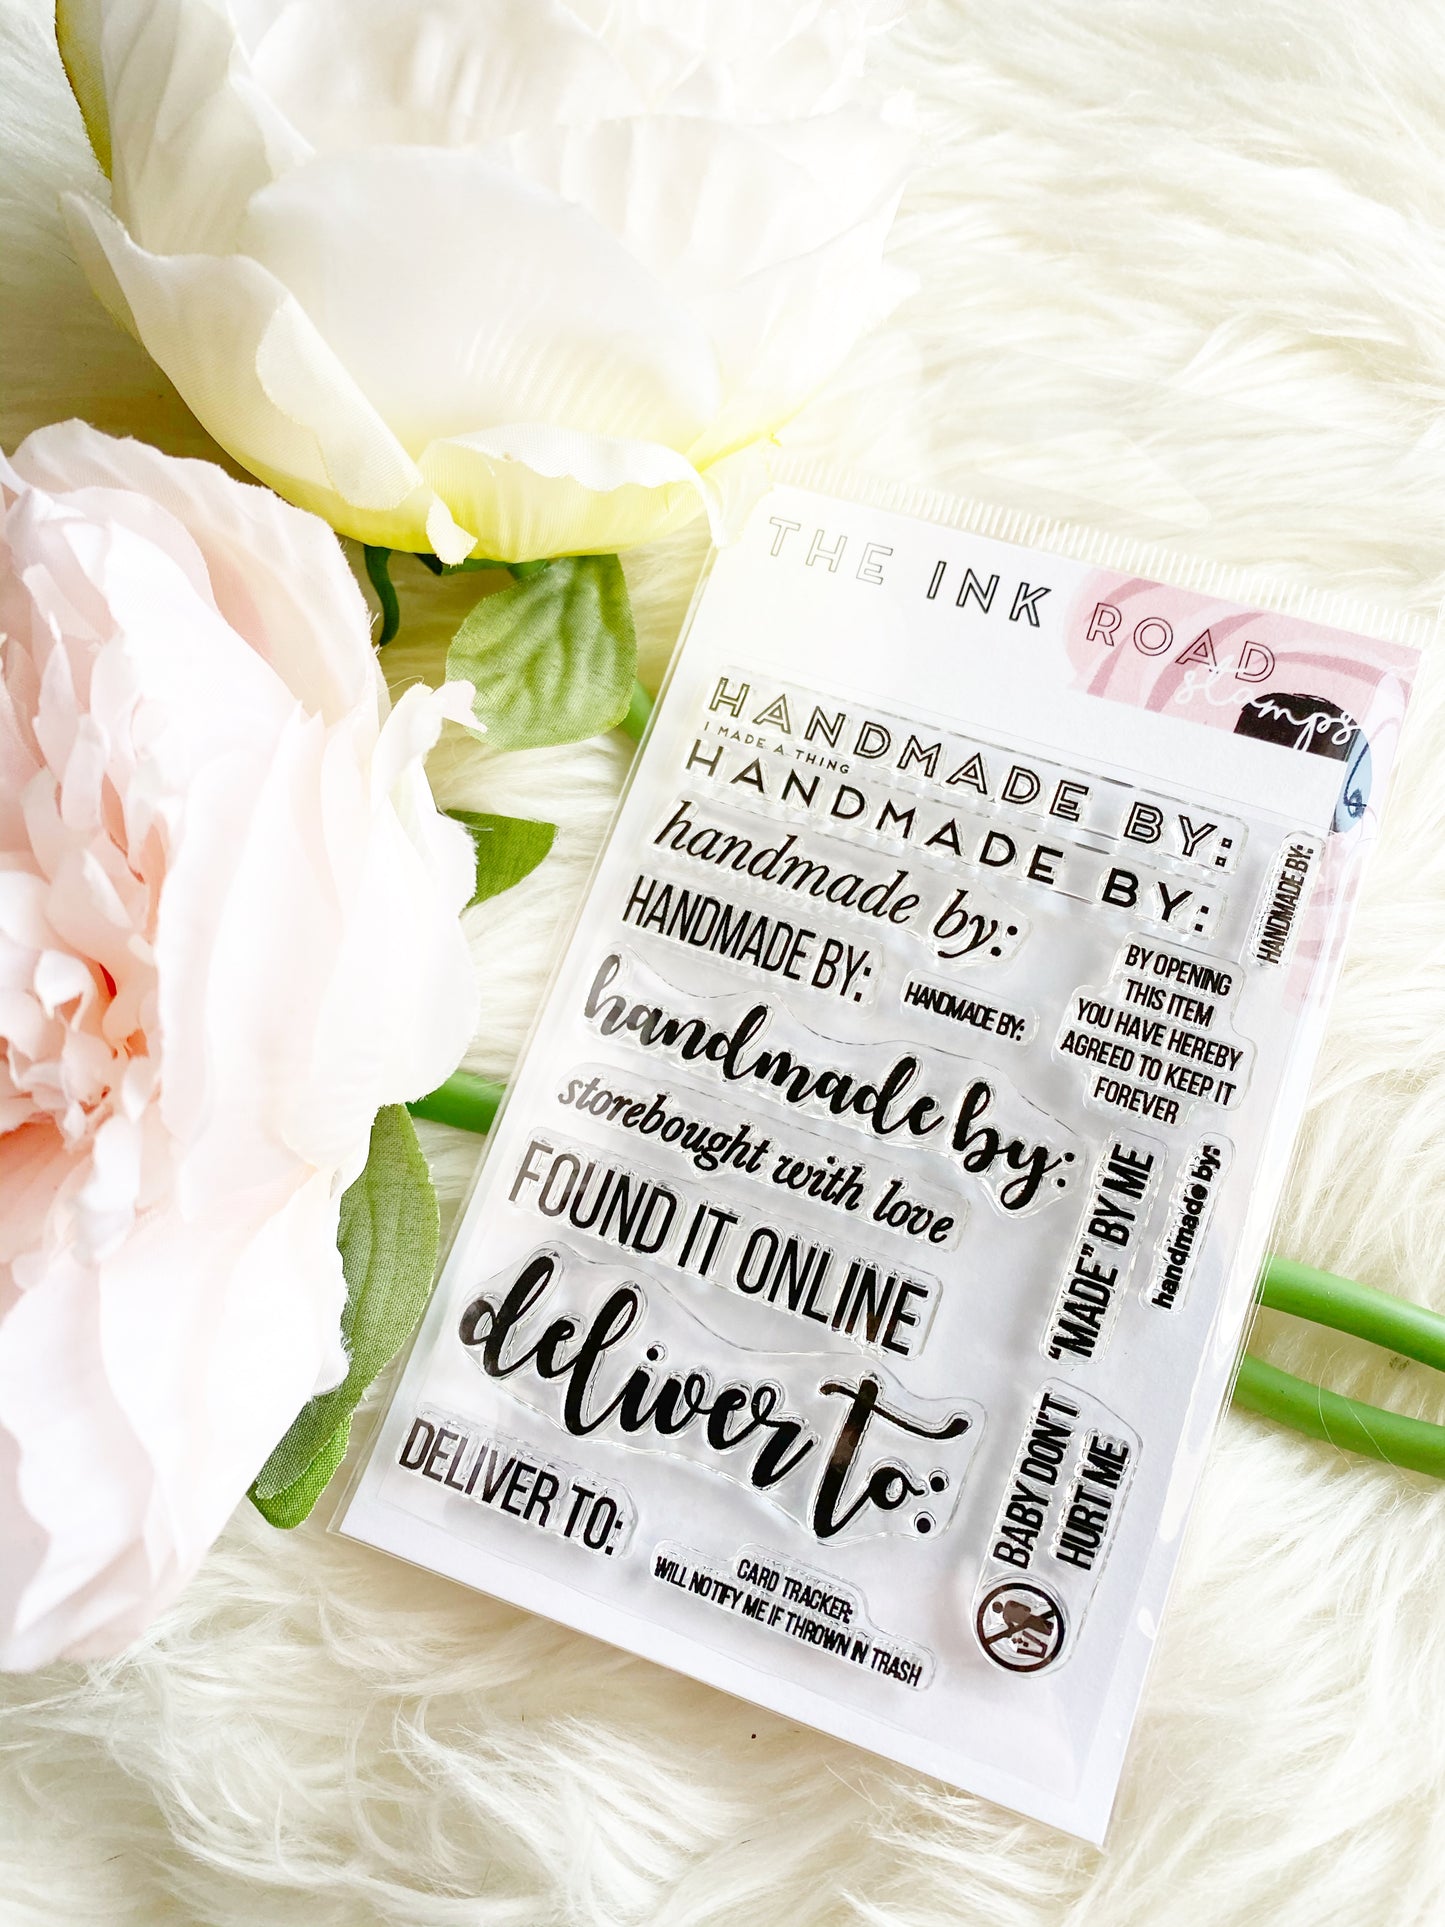 THE INK ROAD
stamps
HANDMADE BY:
I MADE A THING
HANDMADE BY:
handmade by:
HANDMADE BY:
HANDMADE BY:
HANDMADE BY:
BY OPENING
THIS ITEM
YOU HAVE HEREBY
AGREED TO KEEP IT
FOREVER
handmade by:
storebought with love
FOUND IT ONLINE
"MADE" BY ME
handmade by:
deliver to:
DELIVER TO:
BABY DON'T
HURT ME
CARD TRACKER:
WILL NOTIFY ME IF THROWN IN TRASH